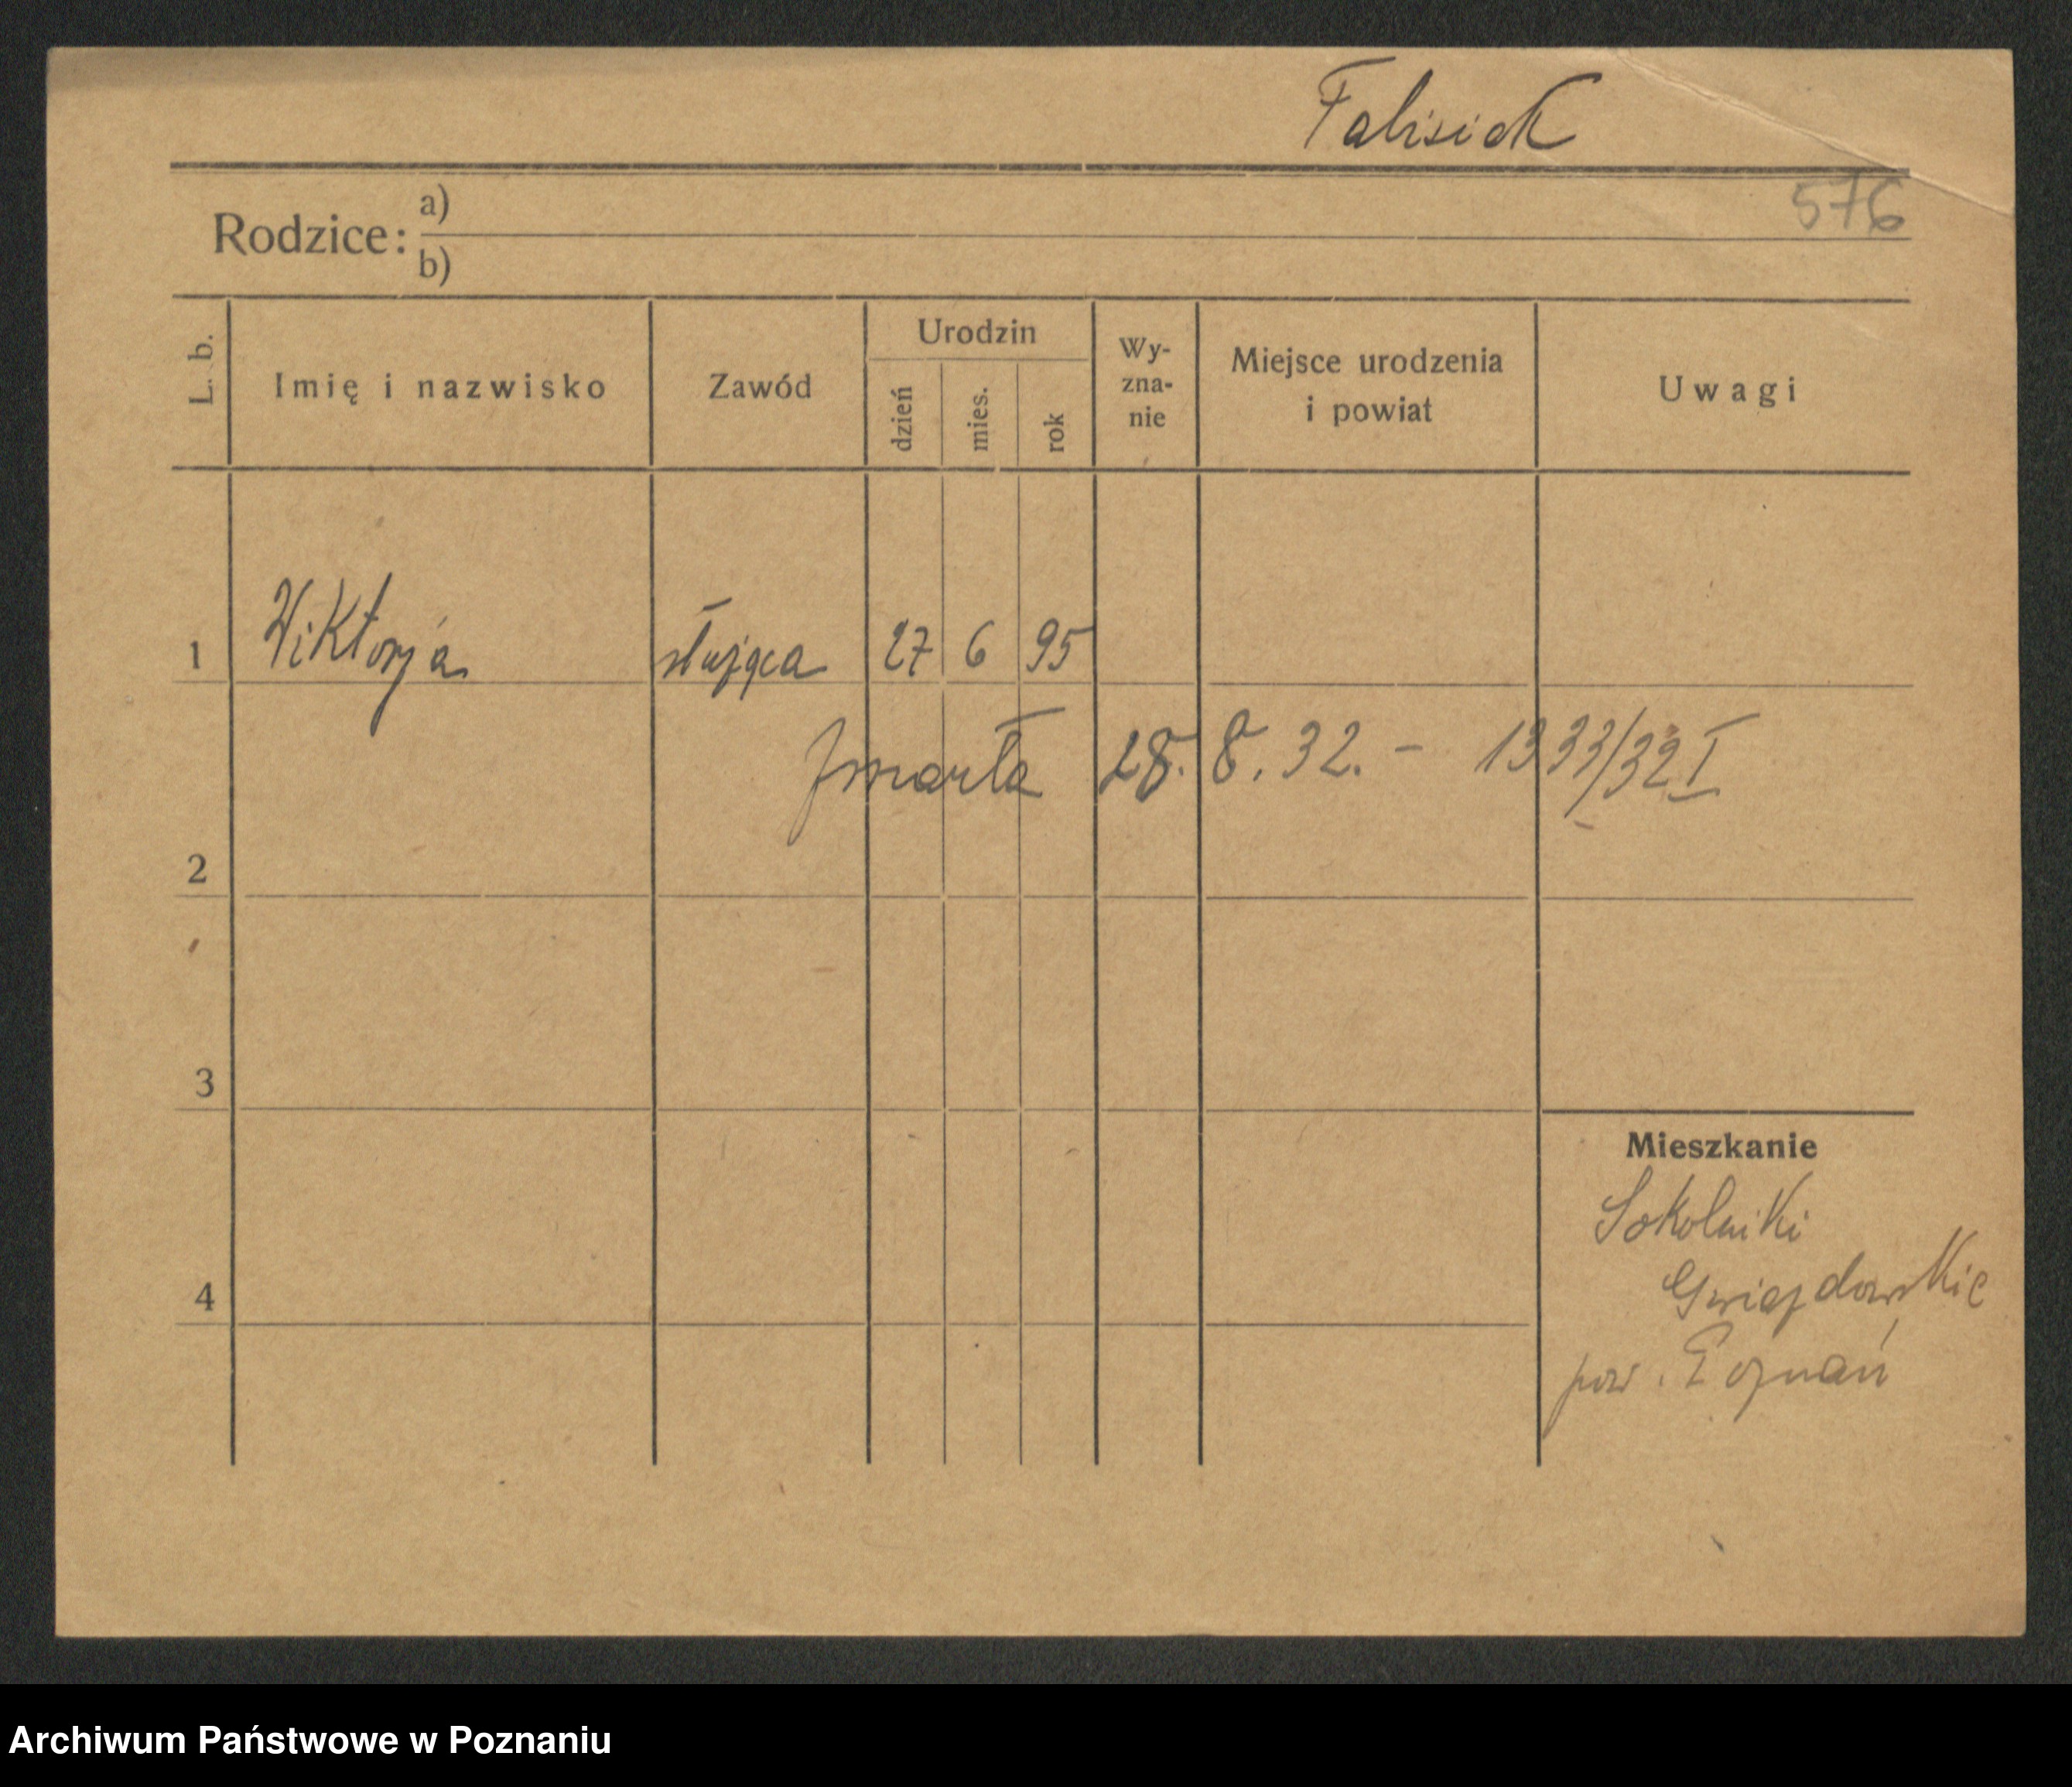 Falisiak
576
Rodzice: a)
b)
L. b.
Imię i nazwisko
Zawód
Urodzin
dzień
mies.
rok
Wy-
zna-
nie
Miejsce urodzenia
i powiat
Uwagi
1 Wiktorja służąca 27 6 95
zmarła 28. 8. 32. - 1333/32 I
2
3
4
Mieszkanie
Sokolniki
Gwiazdowskie
pow. Poznań
Archiwum Państwowe w Poznaniu